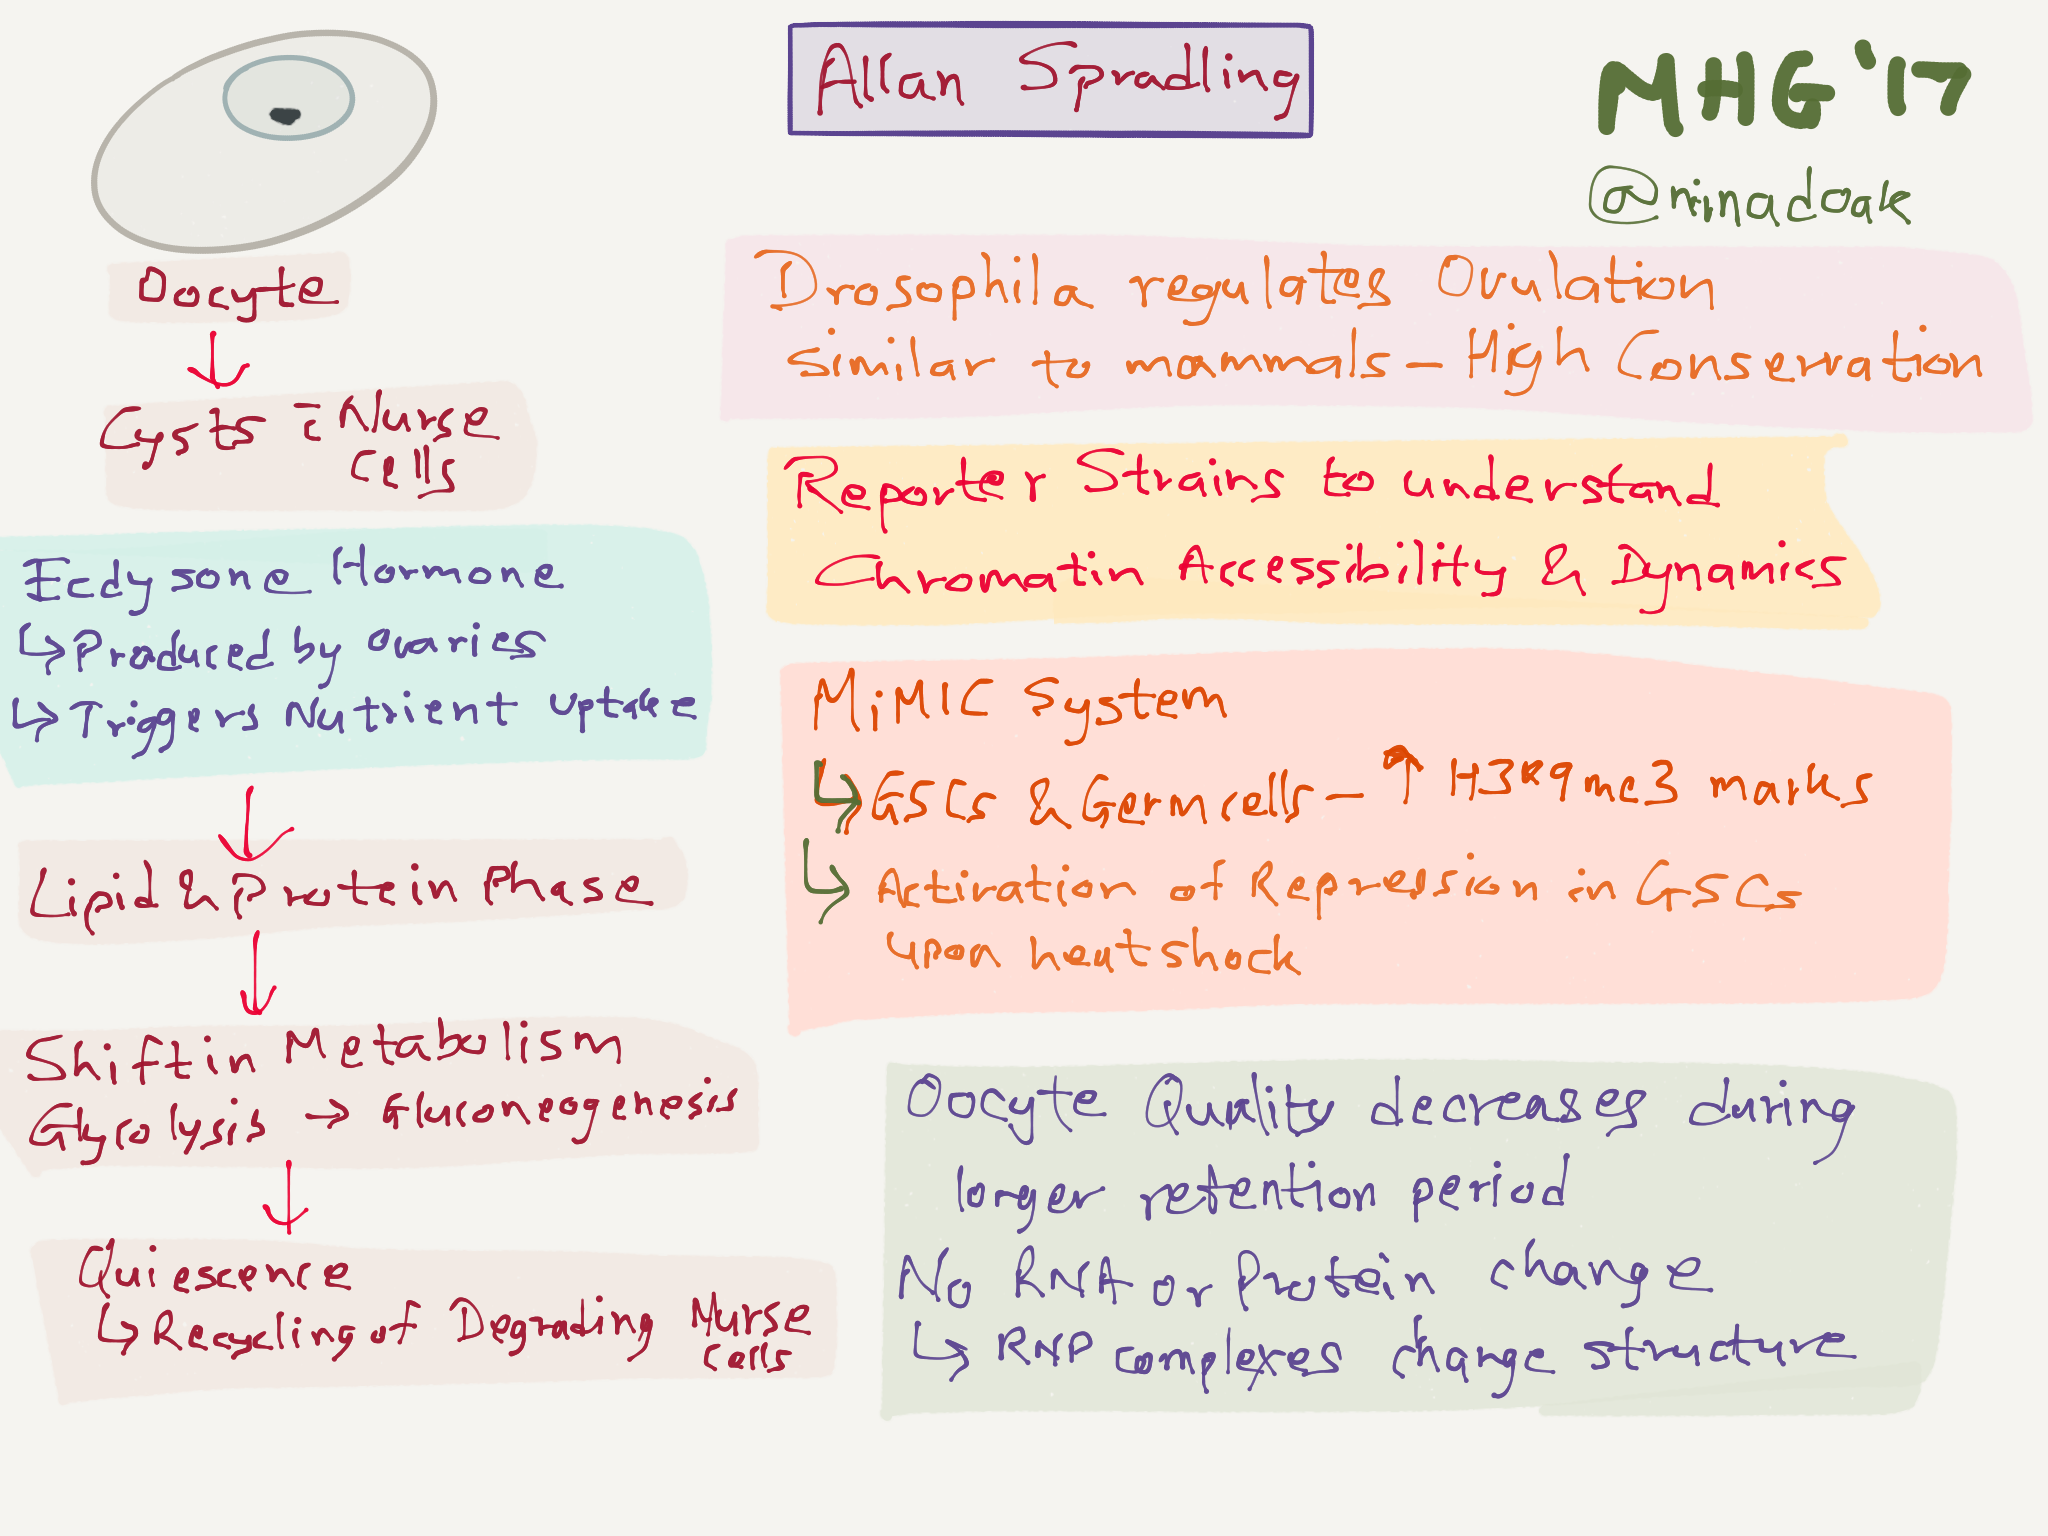 Allan Spradling
MHG '17
@ninadoak
Oocyte
↓
Cysts c̄ Nurse
cells
Ecdysone Hormone
↳ Produced by ovaries
↳ Triggers Nutrient uptake
↓
Lipid & Protein Phase
↓
Shift in Metabolism
Glycolysis → Gluconeogenesis
↓
Quiescence
↳ Recycling of Degrading Nurse
cells
Drosophila regulates Ovulation
similar to mammals – High Conservation
Reporter Strains to understand
Chromatin Accessibility & Dynamics
MiMIC System
↳ GSCs & Germcells – ↑ H3K9me3 marks
↳ Activation of Repression in GSCs
upon heatshock
Oocyte Quality decreases during
longer retention period
No RNA or Protein change
↳ RNP complexes change structure